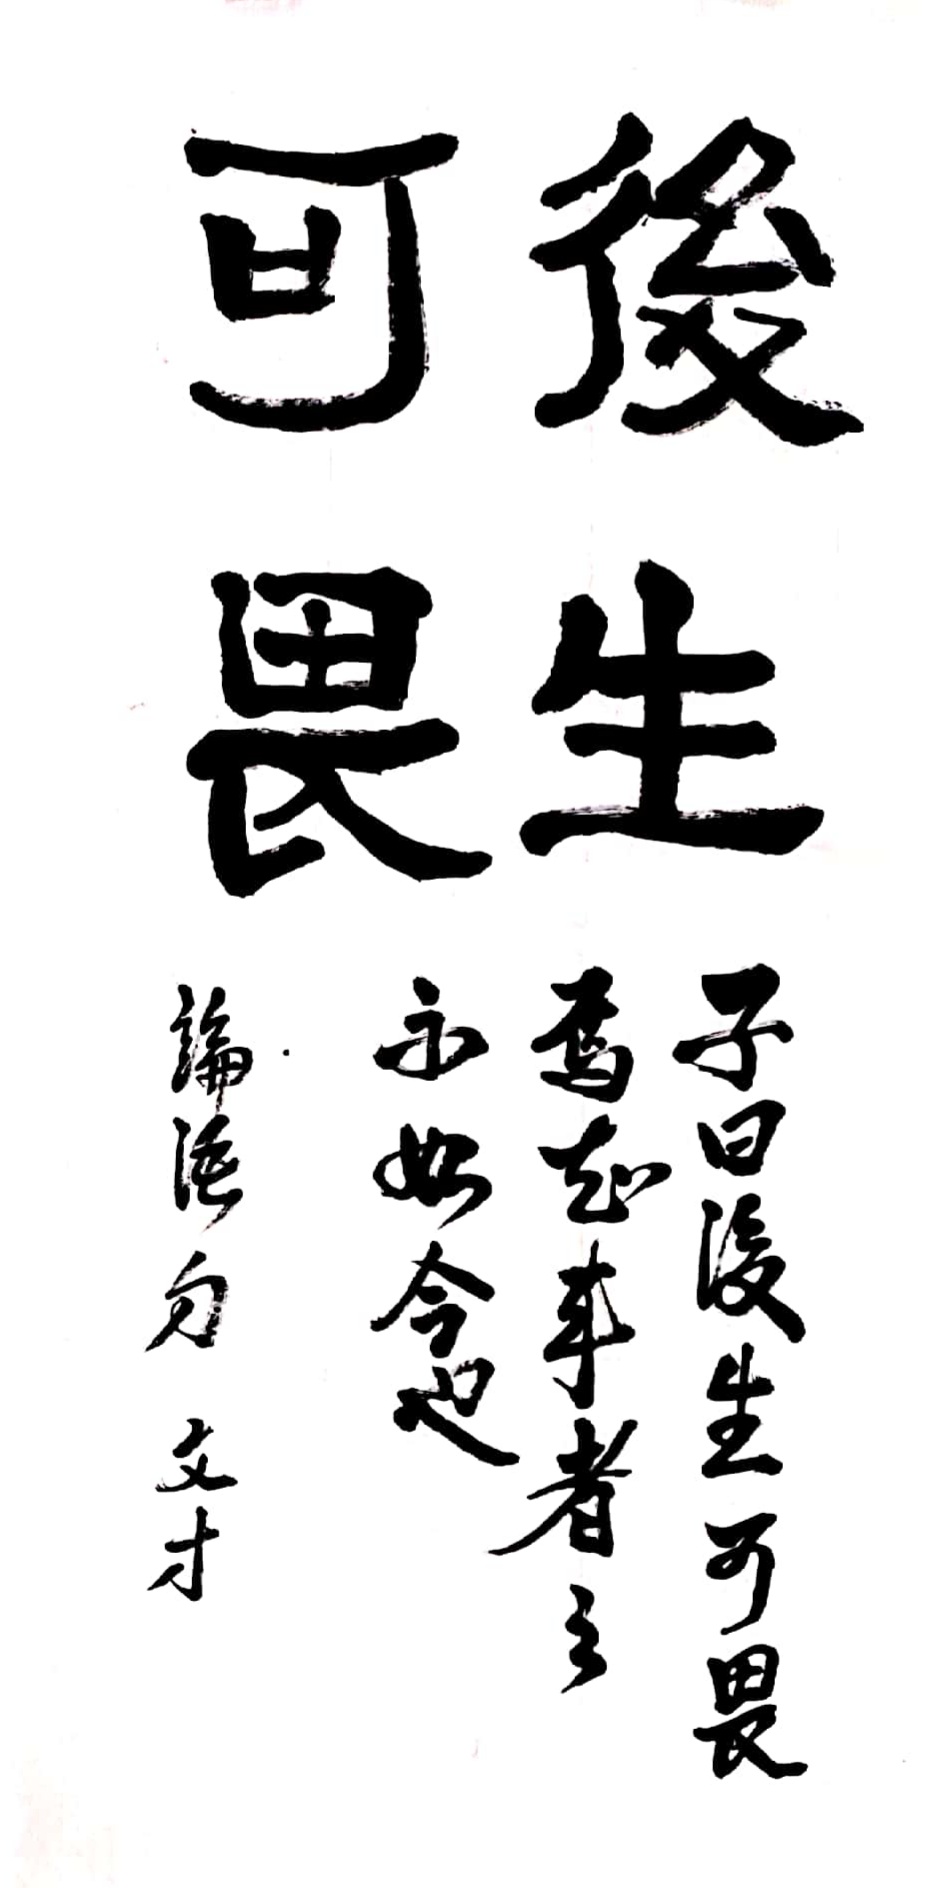 後生
可畏
子曰後生可畏
焉知來者之
不如今也
論語句 文才